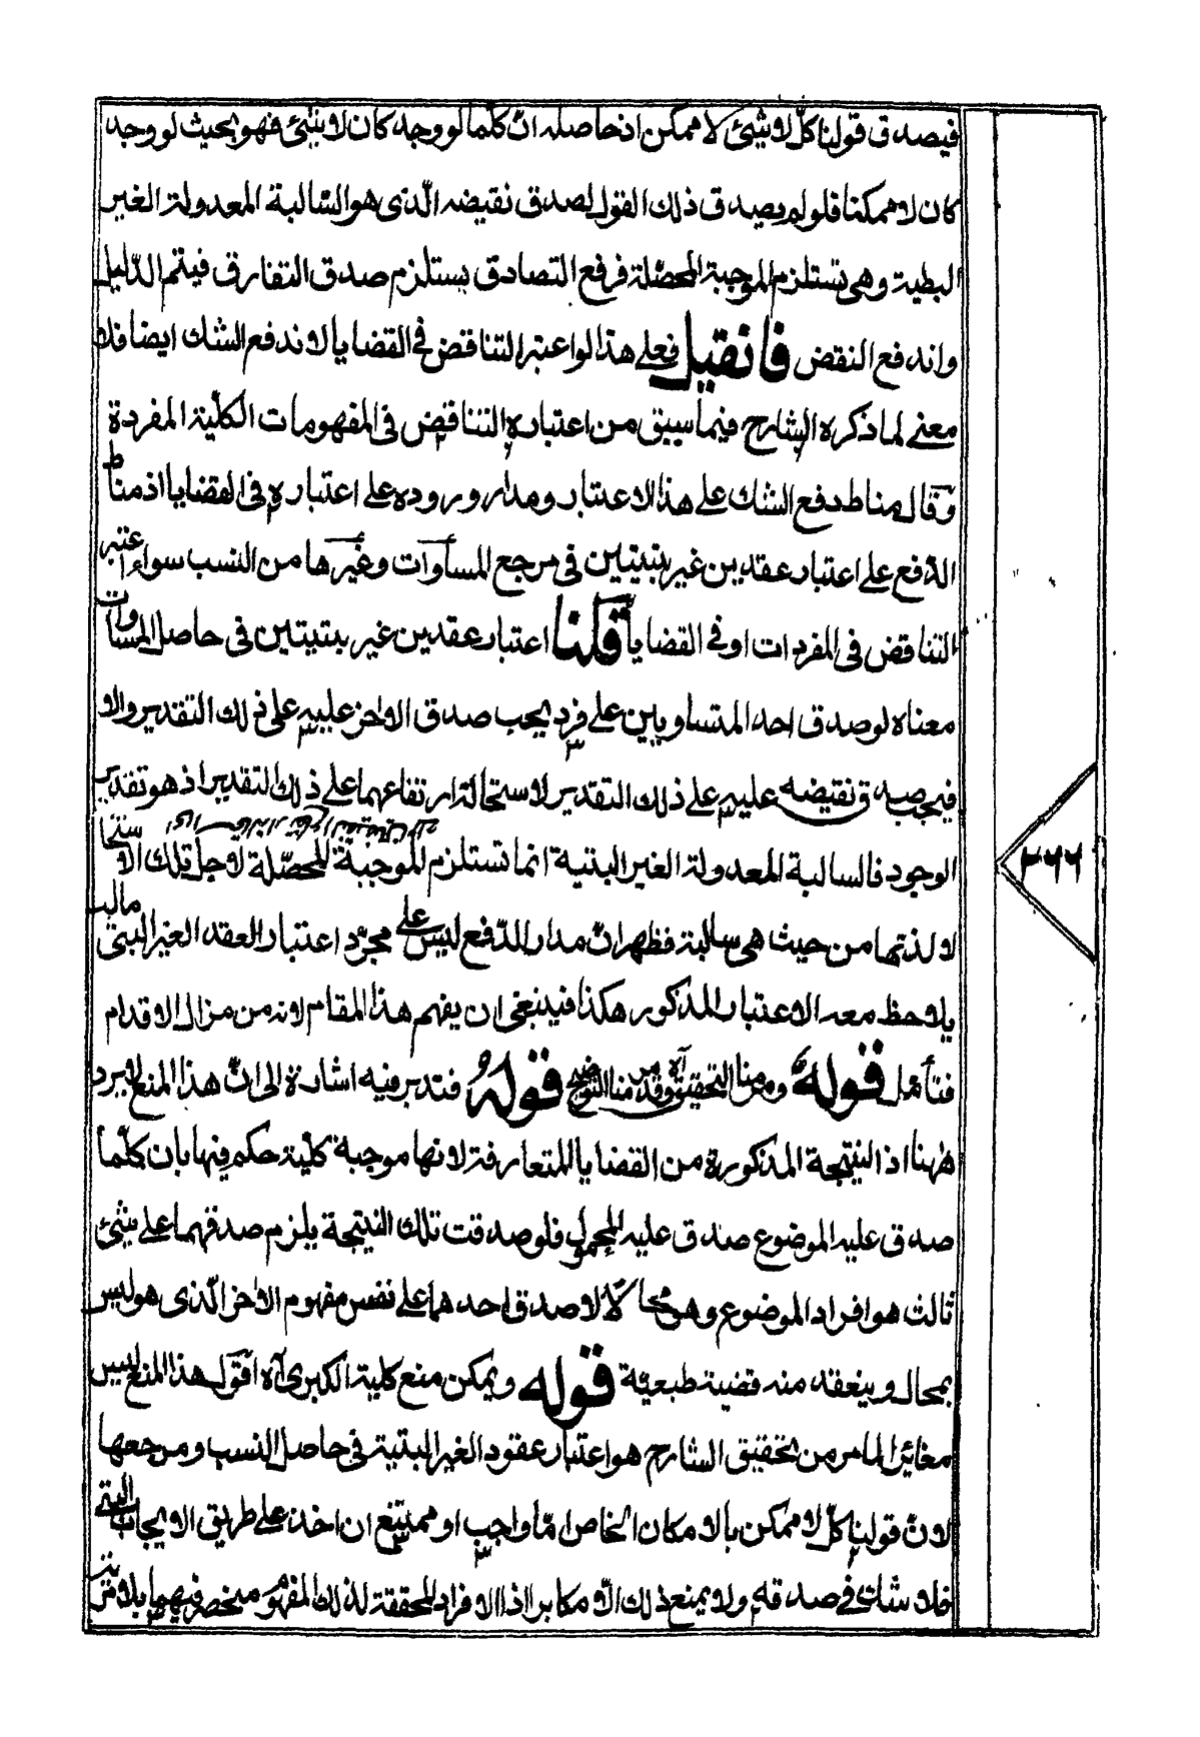 فيصدق قولنا كلّ لاشيئ لاممكن اذ حاصله انّ كلّما لو وجد كان لاشيئ فهو بحيث لو وجد
كان لاممكنا فلو لم يصدق ذلك القول لصدق نقيضه الّذى هو السّالبة المعدولة الغير
البطية وهى تستلزم الموجبة المحصّلة فرفع التصادق يستلزم صدق التفارق فيتم الدّليل
واندفع النقض فانقيل فعلے هذا لو اعتبر التناقض فے القضايا لاندفع الشك ايضا فلا
معنے لما ذكره الشارح فيما سبق من اعتباره التناقض فى المفهومات الكلّية المفردة
وقال مناط دفع الشك علے هذا الاعتبار ومدار وروده على اعتباره فى القضايا اذ مناط
الدّفع على اعتبار عقدين غير بتيتين فى مرجع المساوات وغيرها من النسب سواء اعتبر
التناقض فى المفردات او فے القضايا قلنا اعتبار عقدين غير بتيتين فى حاصل المساوات
معناه لو صدق احد المتساويين علے فرد يجب صدق الاٰخر عليه على ذلك التقدير والا
فيجب صدق نقيضه عليه علے ذلك التقدير لاستحالة ارتفاعهما علے ذلك التقدير اذ هو تقدير
الوجود فالسالبة المعدولة الغير البتية انما تستلزم الموجبة المحصّلة لاجل تلك الاستحالة
لا لذتها من حيث هى سالبة فظهر انّ مدار الدّفع ليس علے مجرّد اعتبار العقد الغير البتى مالم
يلاحظ معه الاعتبار المذكور هكذا فينبغى ان يفهم هذا المقام لانه من مزال الاقدام
فتأمل قوله ومرمنا التحقيق آه وقد مر منا التوضيح قوله فتدبر فيه اشارة الى انّ هذا المنع لا يرد
هٰهنا اذ النتيجة المذكورة من القضايا المتعارفة لانها موجبة كلّية حكم فيها بان كلّما
صدق عليه الموضوع صدق عليه المحمول فلو صدقت تلك النتيجة يلزم صدقهما علے شيئ
ثالث هو افراد الموضوع وهو محال لا صدق احدهما على نفس مفهوم الاٰخر الّذى هو ليس
بمحال وينعقد منه قضية طبعية قوله ويمكن منع كلية الكبرى آه اقول هذا المنع ليس
مغائر المامر من تحقيق الشارح هو اعتبار عقود الغير البتية فى حاصل النسب ومرجعها
لانّ قولنا كلّ لاممكن بالامكان الخاص امّا واجب او ممتنع ان اخذ على طريق الايجاب البتے
فلا شك فى صدقه ولا يمنع ذلك الّا مكابر اذ الافراد المحققة لذلك المفهوم منحصر فيهما بلا
٢٦٦